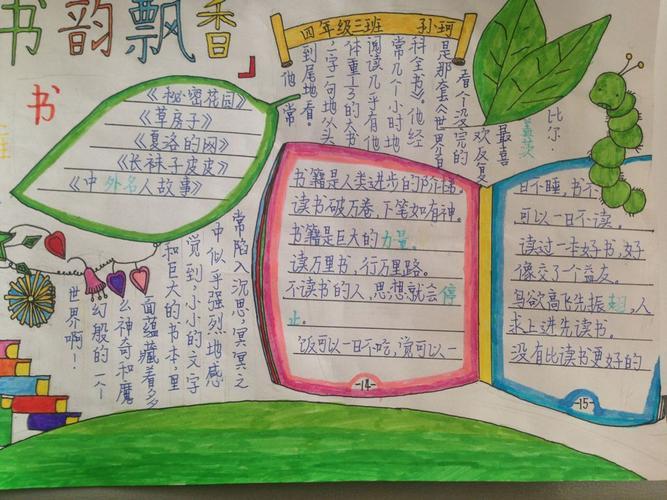 书韵飘香
四年级三班 孙珂
书
《秘密花园》
《草房子》
《夏洛的网》
《长袜子皮皮》
《中外名人故事》
比尔·盖茨
最喜
欢反复
看个没完的
是那套《世界百
科全书》。他经
常几个小时地
阅读几乎有他
体重1/3的大书
一字一句地从头
到尾地看。
他常
常陷入沉思,冥冥之
中似乎强烈地感
觉到,小小的文字
和巨大的书本,里
面蕴藏着多
么神奇和魔
幻般的一个
世界啊!
书籍是人类进步的阶梯。
读书破万卷,下笔如有神。
书籍是巨大的力量。
读万里书,行万里路。
不读书的人,思想就会停
止。
饭可以一日不吃,觉可以一
-14-
日不睡,书不
可以一日不读。
读过一本好书,好
像交了个益友。
鸟欲高飞先振翅,人
求上进先读书。
没有比读书更好的
-15-